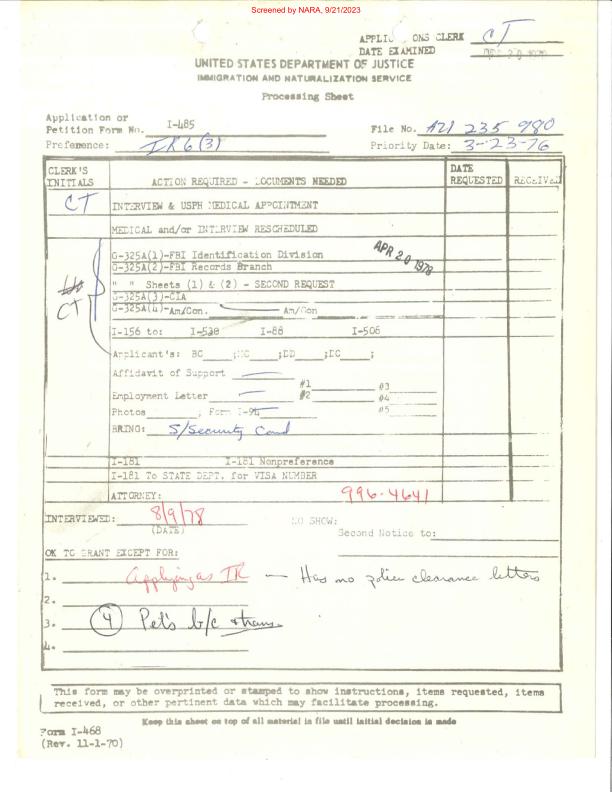 Screened by NARA, 9/21/2023
APPLIC ONS CLERK CT
DATE EXAMINED
UNITED STATES DEPARTMENT OF JUSTICE
IMMIGRATION AND NATURALIZATION SERVICE
Processing Sheet
Application or
Petition Form No. I-485
File No. A21 235 980
Preference: IR6(3)
Priority Date: 3-23-76
CLERK'S INITIALS
ACTION REQUIRED - DOCUMENTS NEEDED
DATE REQUESTED
RECEIVED
CT
INTERVIEW & USPH MEDICAL APPOINTMENT
MEDICAL and/or INTERVIEW RESCHEDULED
G-325A(1)-FBI Identification Division
APR 20 1978
G-325A(2)-FBI Records Branch
" " Sheets (1) & (2) - SECOND REQUEST
G-325A(3)-CIA
CT
G-325A(4)-Am/Con. Am/Con
I-156 to: I-530 I-88 I-506
Applicant's: BC ;MC ;DD ;DC ;
Affidavit of Support
#1 #3
Employment Letter #2 #4
Photos ; Form I-94 #5
BRING: S/Security Card
I-181 I-181 Nonpreference
I-181 To STATE DEPT. for VISA NUMBER
ATTORNEY: 996-4641
INTERVIEWED: 8/9/78
(DATE)
NO SHOW:
Second Notice to:
OK TO GRANT EXCEPT FOR:
1. Applying as IR — Has no police clearance letters
2.
3. 4 Pet's b/c + trans.
4.
This form may be overprinted or stamped to show instructions, items requested, items
received, or other pertinent data which may facilitate processing.
Keep this sheet on top of all material in file until initial decision is made
Form I-468
(Rev. 11-1-70)